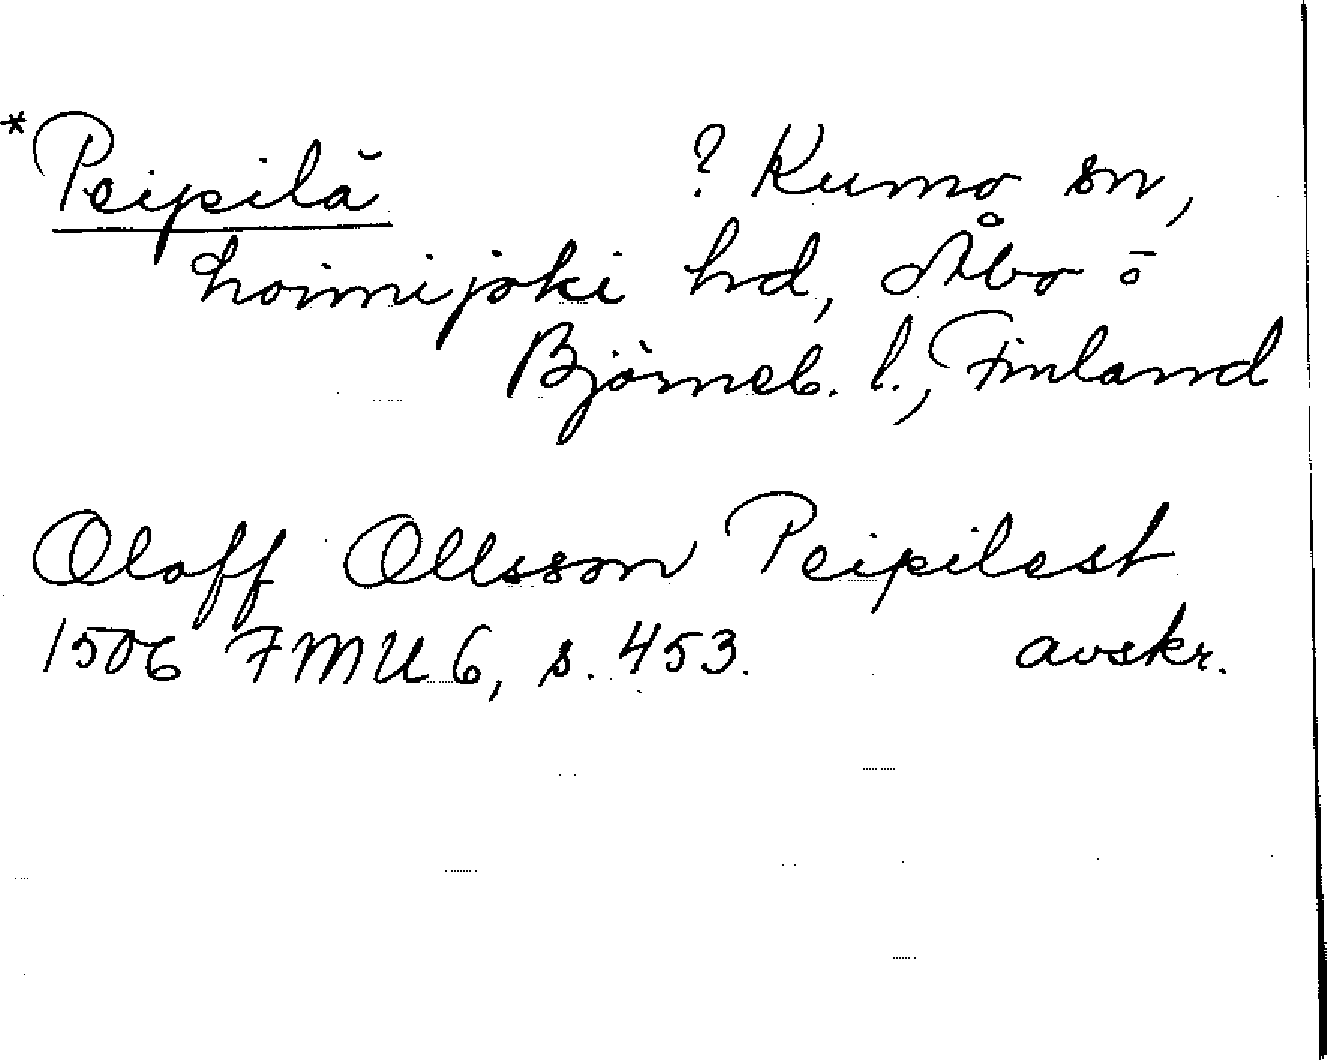 *Peipilä ? Kumo sn,
Loimijoki hd, Åbo o
Björneb. l., Finland
Oloff Ollsson Peipilest
1506 FMU 6, s. 453. avskr.